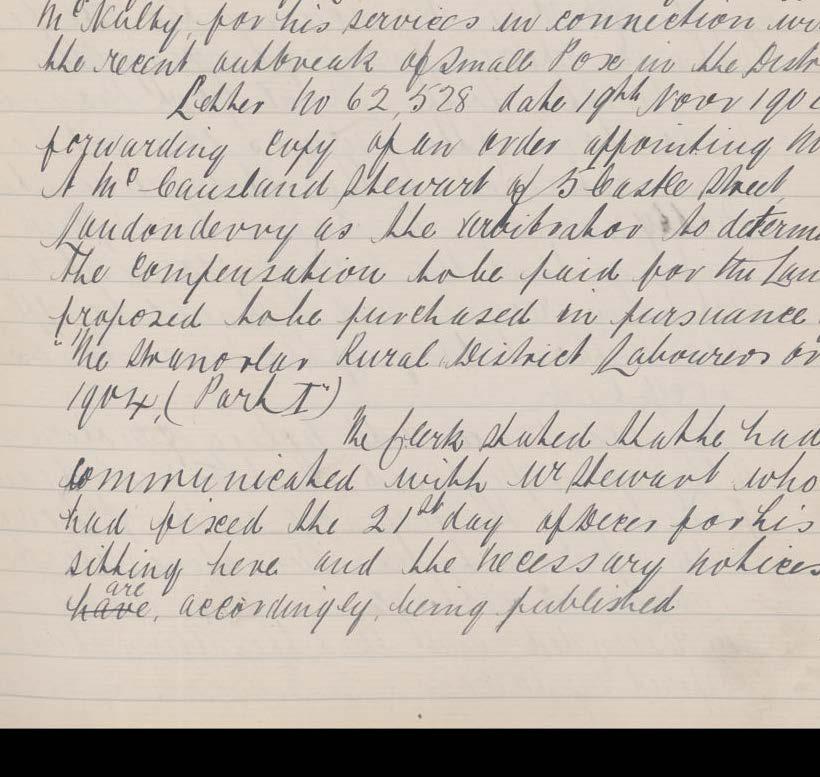 McNulty, for his services in connection
the recent outbreak of Small Pox in the Distr
Letter No 62,528 date 19th Novr 190
forwarding copy of an order appointing M
A McCausland Stewart of 5 Castle Street
Londonderry as the Arbitrator to determi
the compensation to be paid for the Lan
proposed to be purchased in pursuance
"The Stranorlar Rural District Labourers or
1904, (Part I")
The Clerk stated that he had
communicated with Mr Stewart who
had fixed the 21st day of Decer for his
sitting here and the necessary notices
have are, accordingly, being published